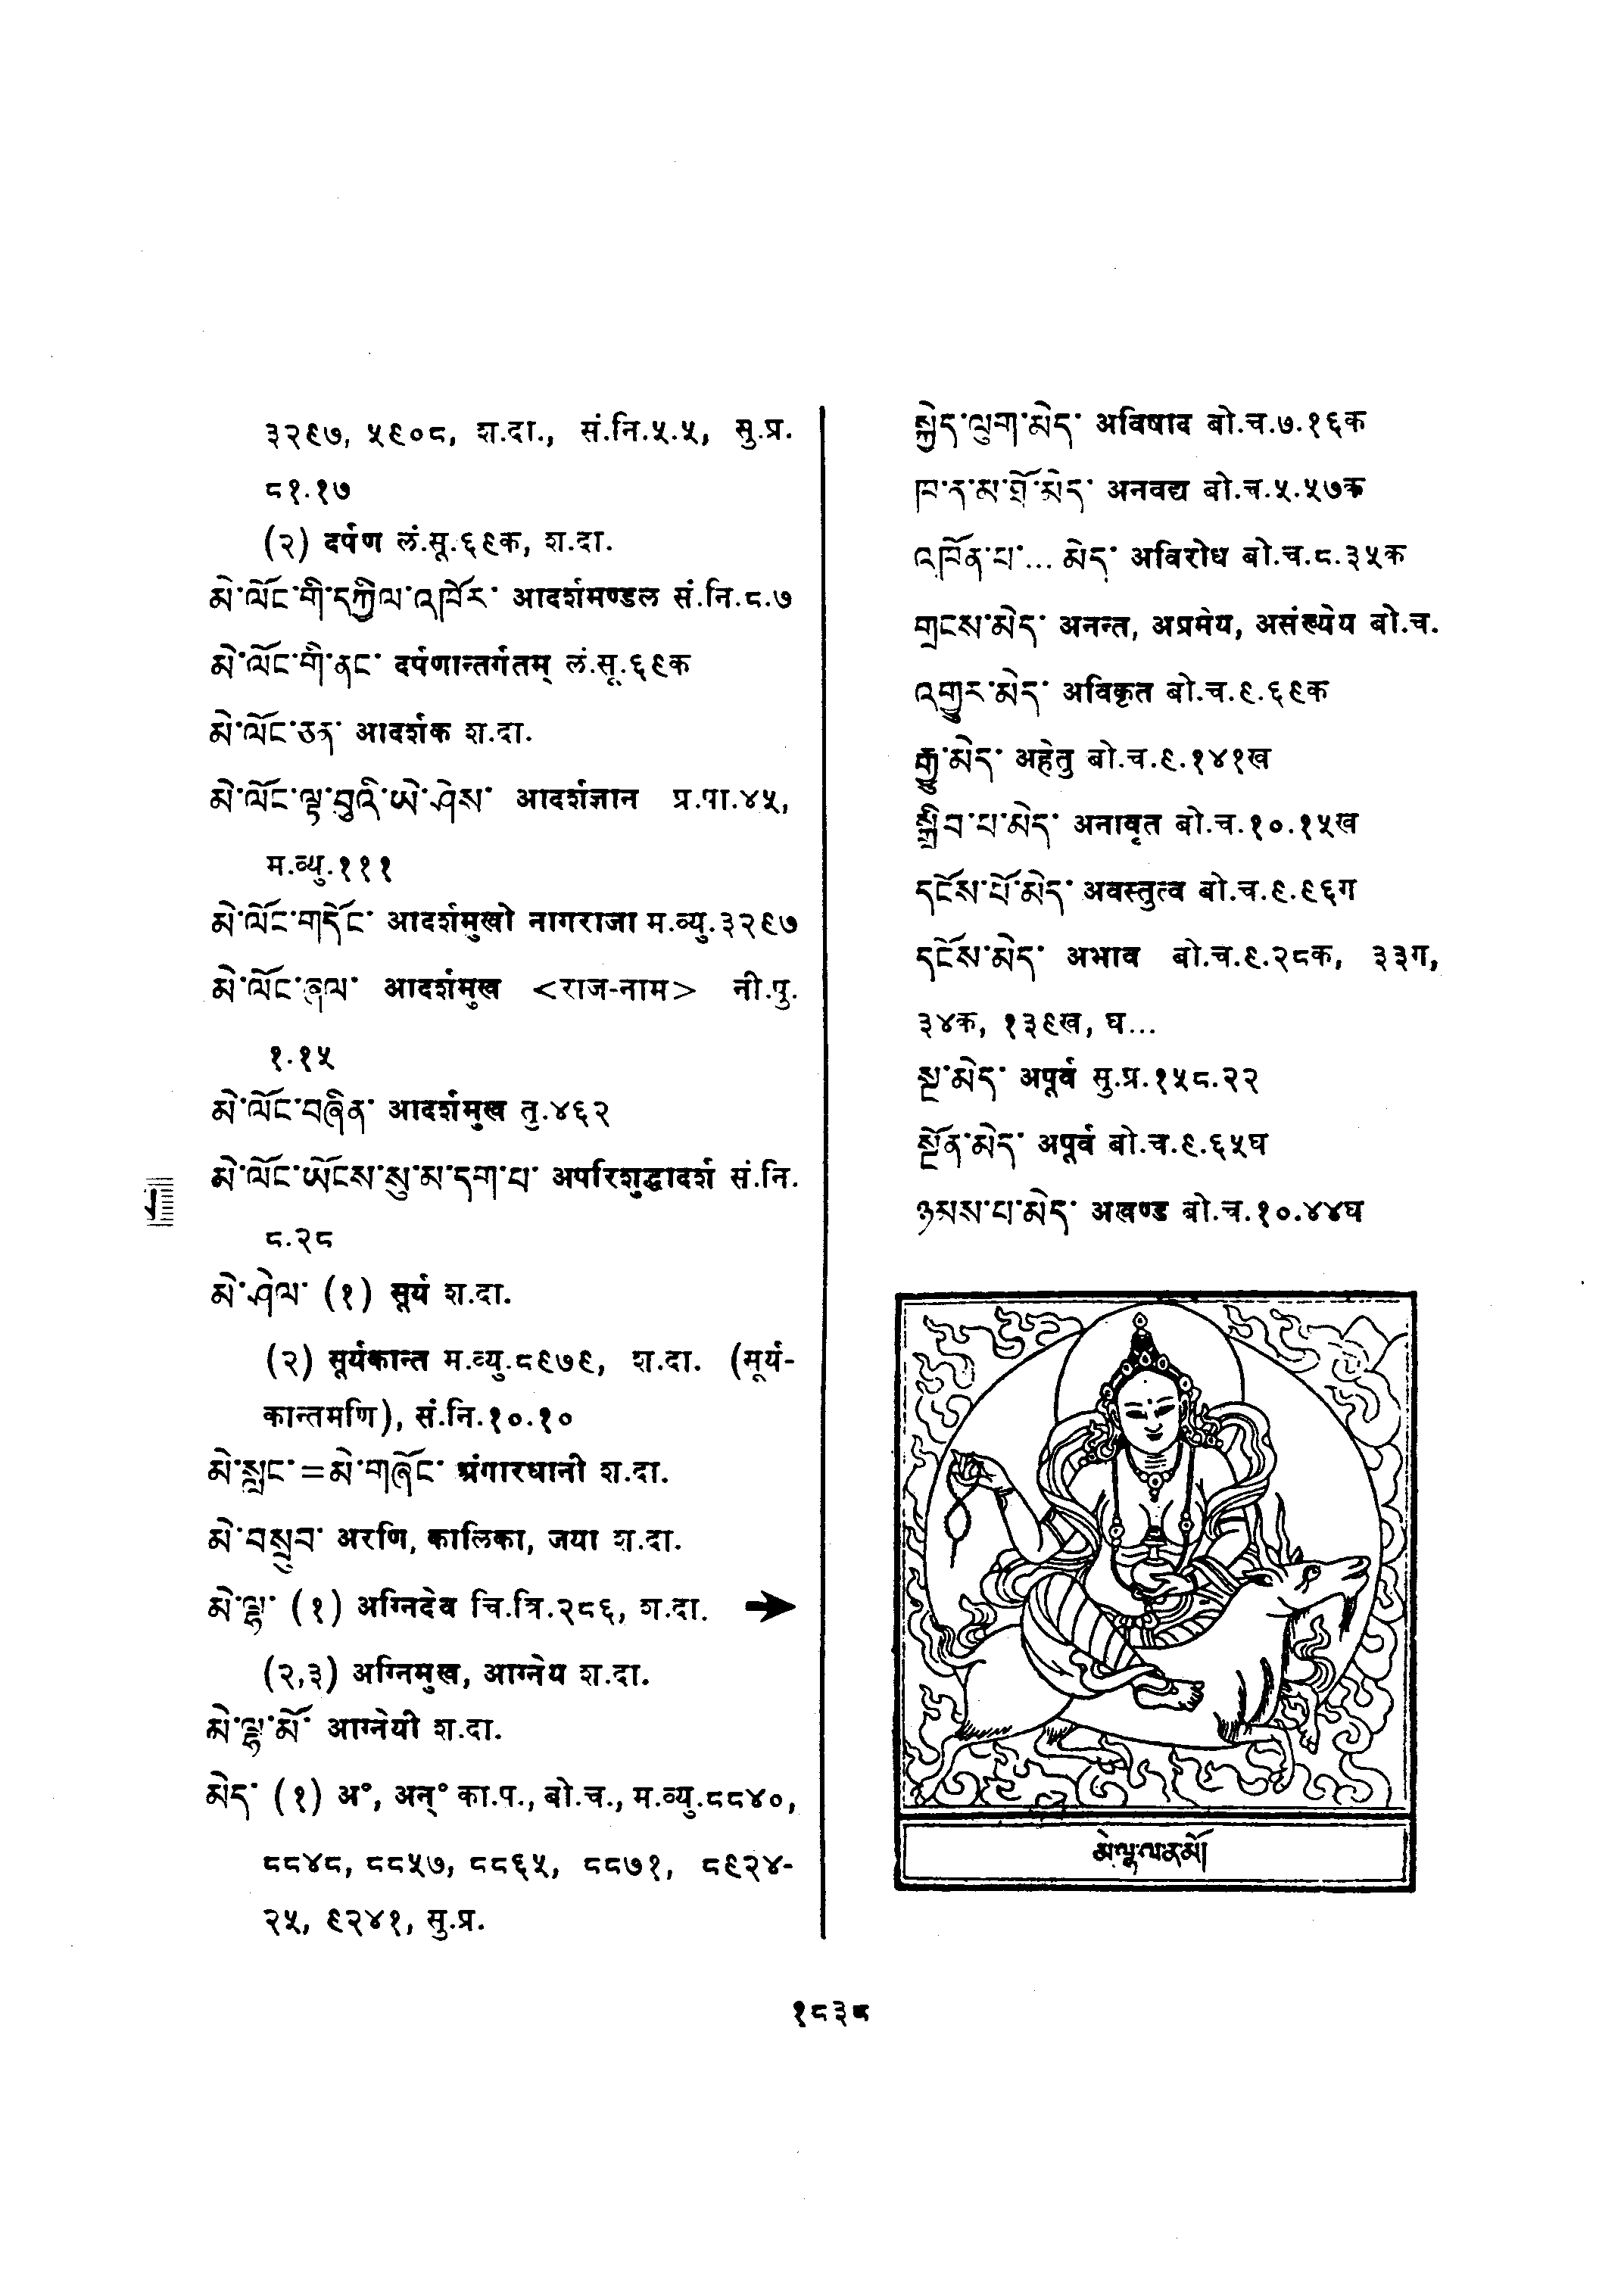 ३२९७, ५९०८, श.दा., सं.नि.५.५, सु.प्र.
८१.१७
(२) दर्पण लं.सू.६९क, श.दा.
མེ་ལོང་གི་དཀྱིལ་འཁོར་ आदर्शमण्डल सं.नि.८.७
མེ་ལོང་གི་ནང་ दर्पणान्तर्गतम् लं.सू.६९क
མེ་ལོང་ཅན་ आदर्शक श.दा.
མེ་ལོང་ལྟ་བུའི་ཡེ་ཤེས་ आदर्शज्ञान प्र.पा.४५,
म.व्यु.१११
མེ་ལོང་གདོང་ आदर्शमुखो नागराजा म.व्यु.३२९७
མེ་ལོང་ཞལ་ आदर्शमुख <राज-नाम> नी.पु.
१.१५
མེ་ལོང་བཞིན་ आदर्शमुख तु.४६२
མེ་ལོང་ཡོངས་སུ་མ་དག་པ་ अपरिशुद्धादर्श सं.नि.
८.२८
མེ་ཤེལ་ (१) सूर्य श.दा.
(२) सूर्यकान्त म.व्यु.८९७९, श.दा. (सूर्य-
कान्तमणि), सं.नि.१०.१०
མེ་སླང་=མེ་གཞོང་ भ्रंगारधानी श.दा.
མེ་བསྲུབ་ अरणि, कालिका, जया श.दा.
མེ་ལྷ་ (१) अग्निदेव चि.त्रि.२८६, श.दा. ➔
(२,३) अग्निमुख, आग्नेय श.दा.
མེ་ལྷ་མོ་ आग्नेयी श.दा.
མེད་ (१) अ°, अन्° का.प., बो.च., म.व्यु.८८४०,
८८४८, ८८५७, ८८६५, ८८७१, ८९२४-
२५, ९२४१, सु.प्र.
སྐྱིད་ལུག་མེད་ अविषाद बो.च.७.१६क
ཁ་ན་མ་ཐོ་མེད་ अनवद्य बो.च.५.५७क
འཁོན་པ་... མེད་ अविरोध बो.च.८.३५क
གྲངས་མེད་ अनन्त, अप्रमेय, असंख्येय बो.च.
འགྱུར་མེད་ अविकृत बो.च.९.६९क
རྒྱུ་མེད་ अहेतु बो.च.९.१४१ख
སྒྲིབ་པ་མེད་ अनावृत बो.च.१०.१५ख
དངོས་པོ་མེད་ अवस्तुत्व बो.च.९.९६ग
དངོས་མེད་ अभाव बो.च.९.२८क, ३३ग,
३४क, १३९ख, घ...
སྔ་མེད་ अपूर्व सु.प्र.१५८.२२
སྔོན་མེད་ अपूर्व बो.च.९.६५घ
ཉམས་པ་མེད་ अखण्ड बो.च.१०.४४घ
१८३८